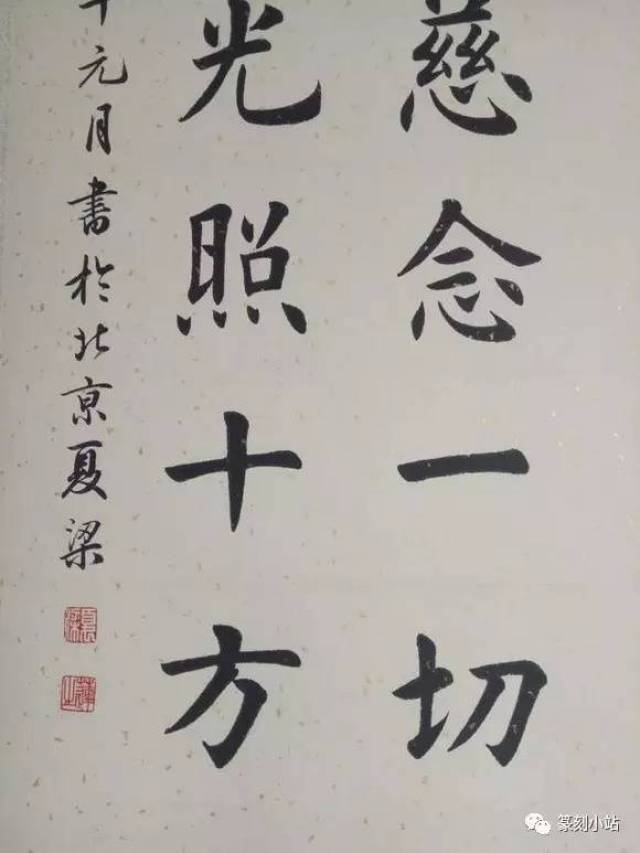 慈念一切
光照十方
元月書於北京夏梁
篆刻小站